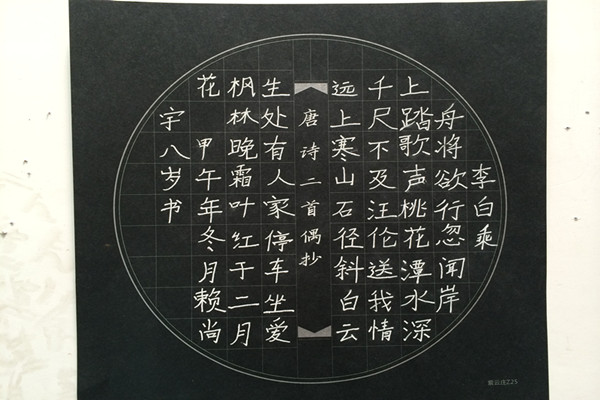 李白乘
舟将欲行忽闻岸
上踏歌声桃花潭水深
千尺不及汪伦送我情
远上寒山石径斜白云
唐诗二首偶抄
生处有人家停车坐爱
枫林晚霜叶红于二月
花 甲午年冬月赖尚
宇八岁书